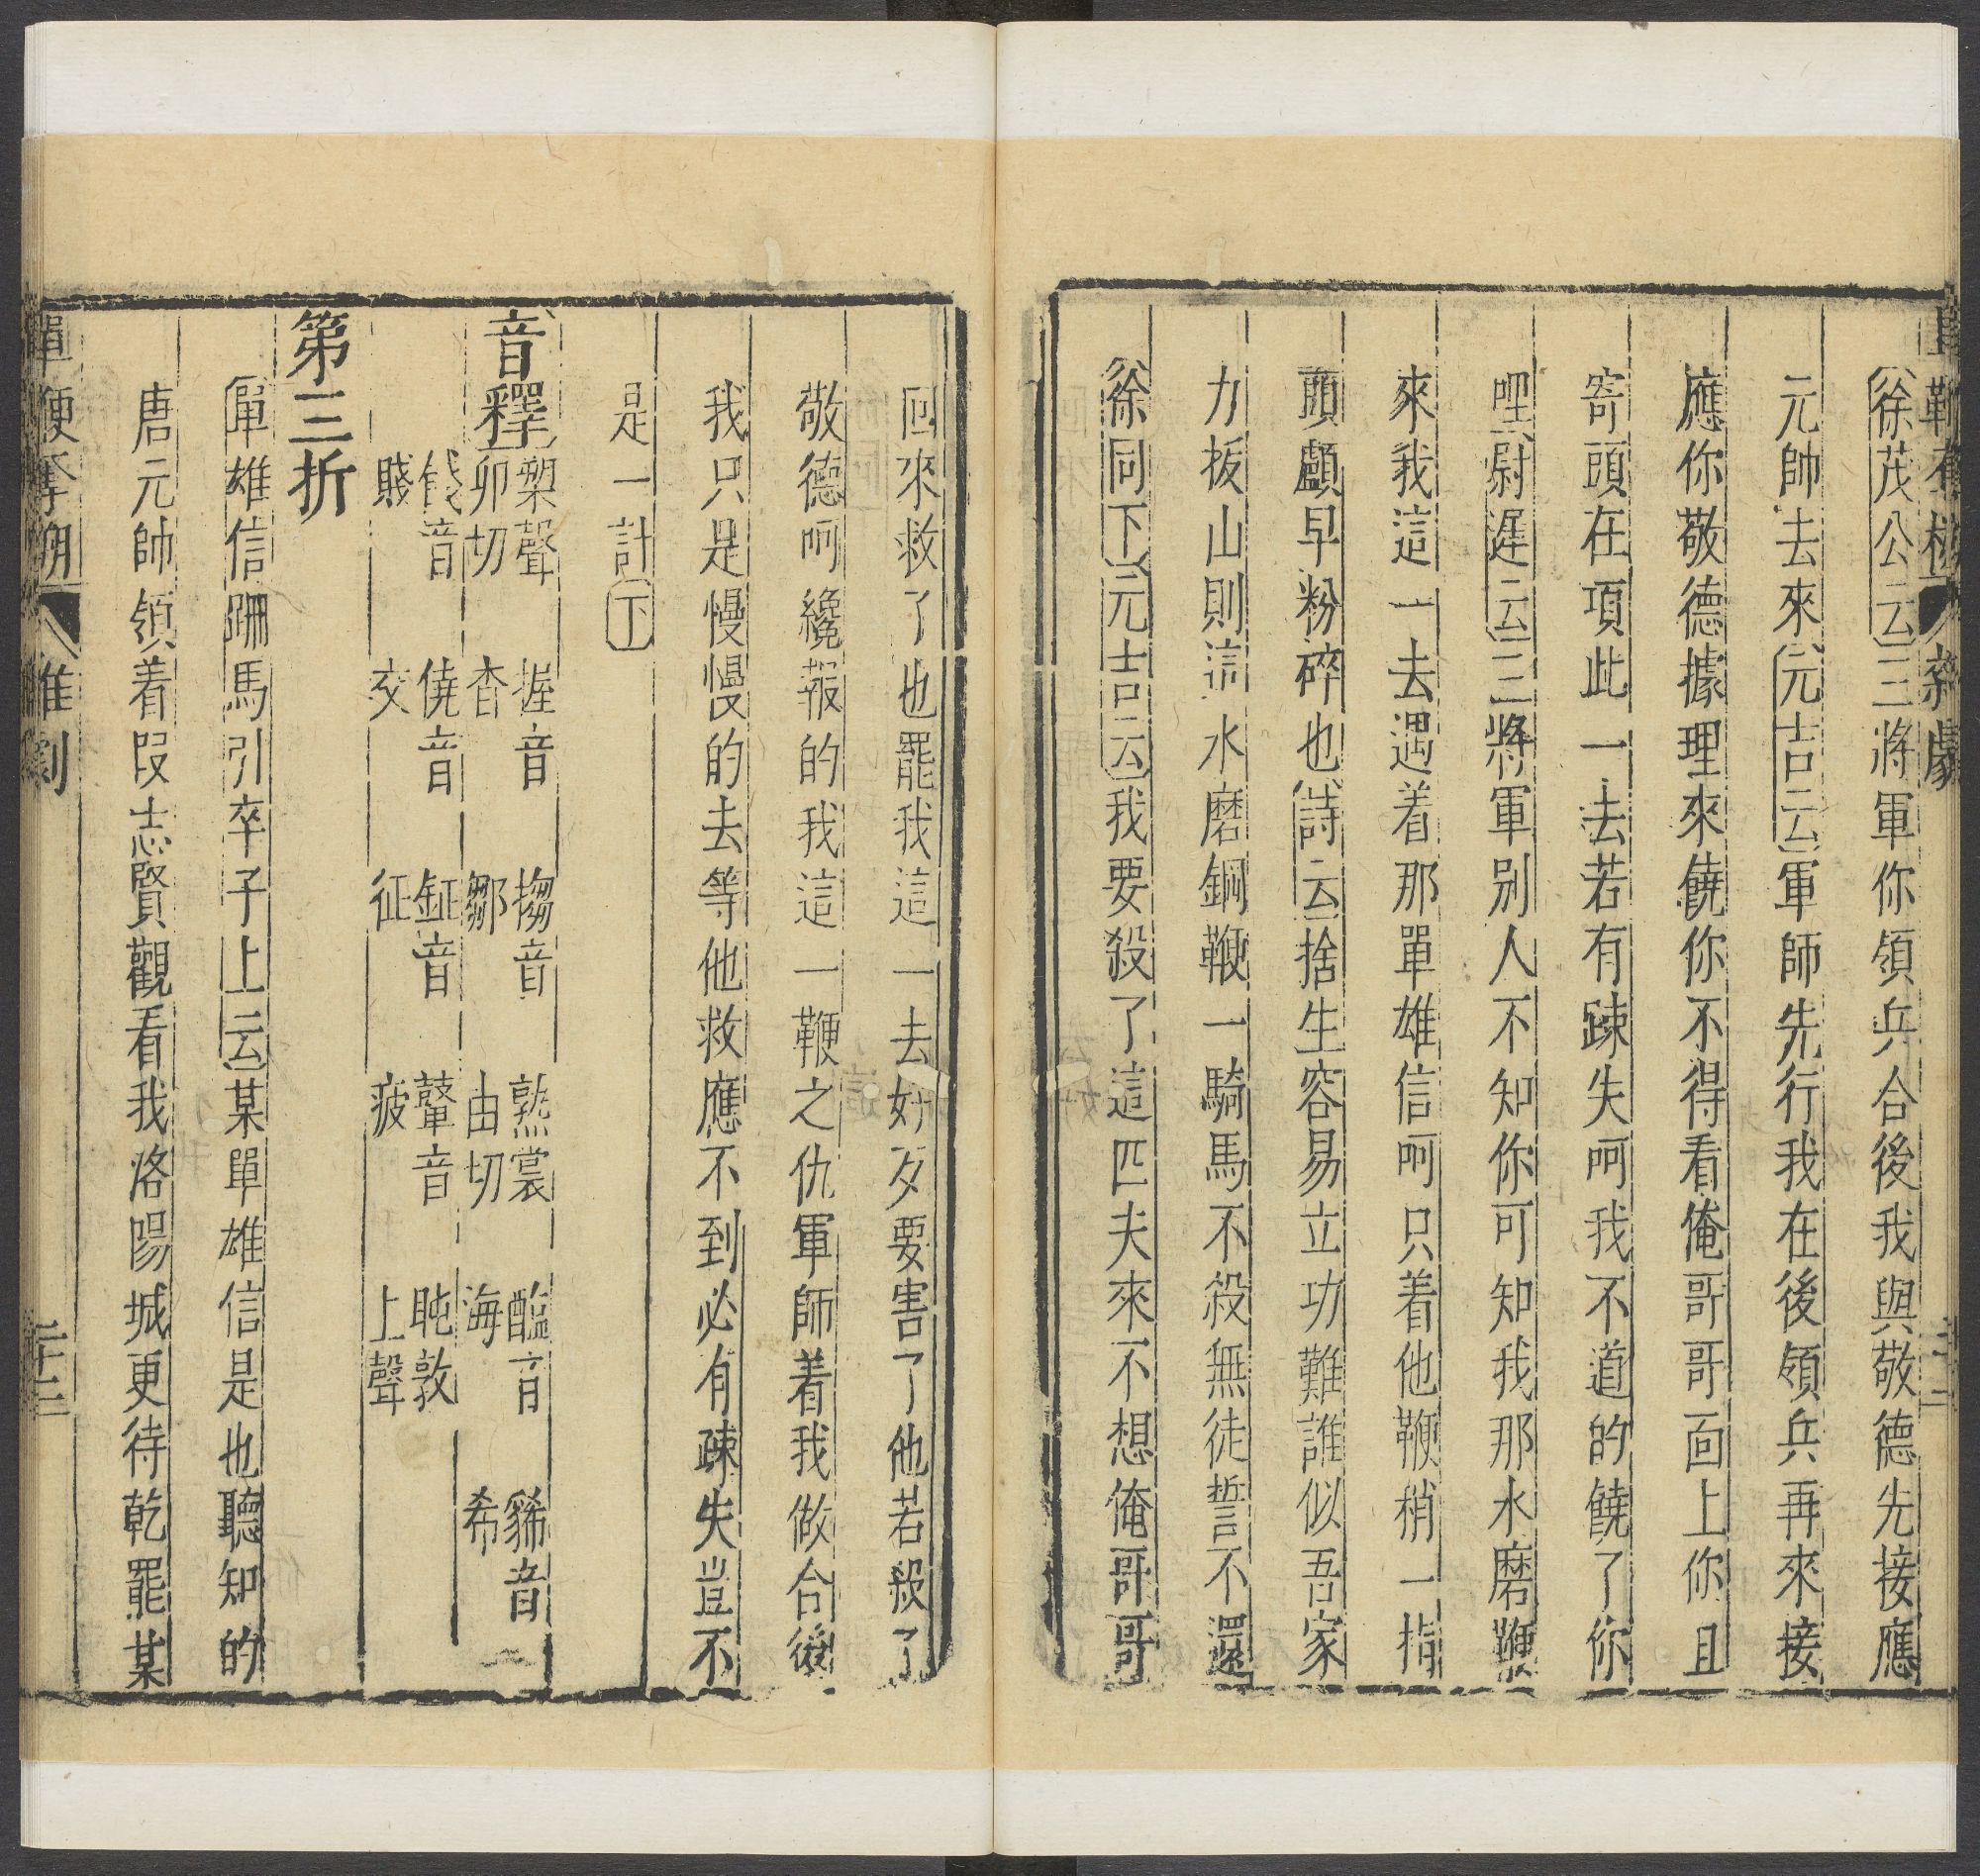 徐茂公云三將軍你領兵合後我與敬德先接應
元帥去來元吉云軍師先行我在後領兵再來接
應你敬德據理來饒你不得看俺哥哥面上你且
寄頭在項此一去若有踈失呵我不道的饒了你
哩尉遲云三將軍別人不知你可知我那水磨鞭
來我這一去遇着那單雄信呵只着他鞭稍一指
頭顱早粉碎也詩云捨生容易立功難誰似吾家
力扳山則這水磨鋼鞭一騎馬不殺無徒誓不還
徐同下元吉云我要殺了這匹夫來不想俺哥哥
回來救了也罷我這一去好歹要害了他若殺了
敬德呵纔報的我這一鞭之仇軍師着我做合後
我只是慢慢的去等他救應不到必有踈失豈不
是一計下
音釋
槊聲卯切 握音杳 搊音鄒 熟裳由切 醢音海 豨音希
餞音賤 僥音交 鉦音征 鼙音疲 盹敦上聲
第三折
單雄信跚馬引卒子上云某單雄信是也聽知的
唐元帥領着段志賢觀看我洛陽城更待乾罷某
單鞭奪槊 雜劇 二十二